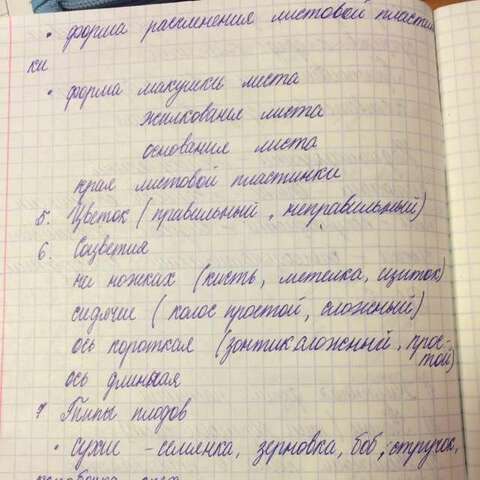 • форма расчленения листовой пластин
ки
• форма макушки листа
жилкование листа
основания листа
края листовой пластинки
5. Цветок (правильный, неправильный)
6. Соцветия
на ножках (кисть, метелка, щиток)
сидячие (колос простой, сложный)
ось короткая (зонтик сложный, прос-
той)
ось длинная
7. Типы плодов
• сухие - семянка, зерновка, боб, стручок,
коробочка, орех